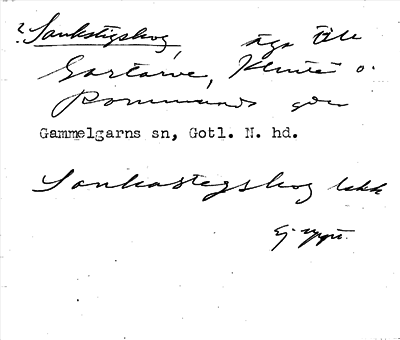 ? Sankstigskog, äga Öle
Gartarve, Klinte o.
Rommunds gdr
Gammelgarns sn, Gotl. N. hd.
Sankastegskog lekk
Ej uppt.